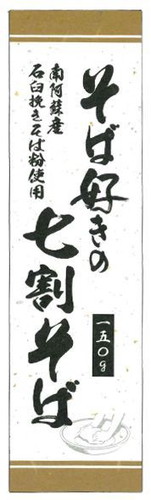 そば好きの
七割そば
南阿蘇産
石臼挽きそば粉使用
一五〇g